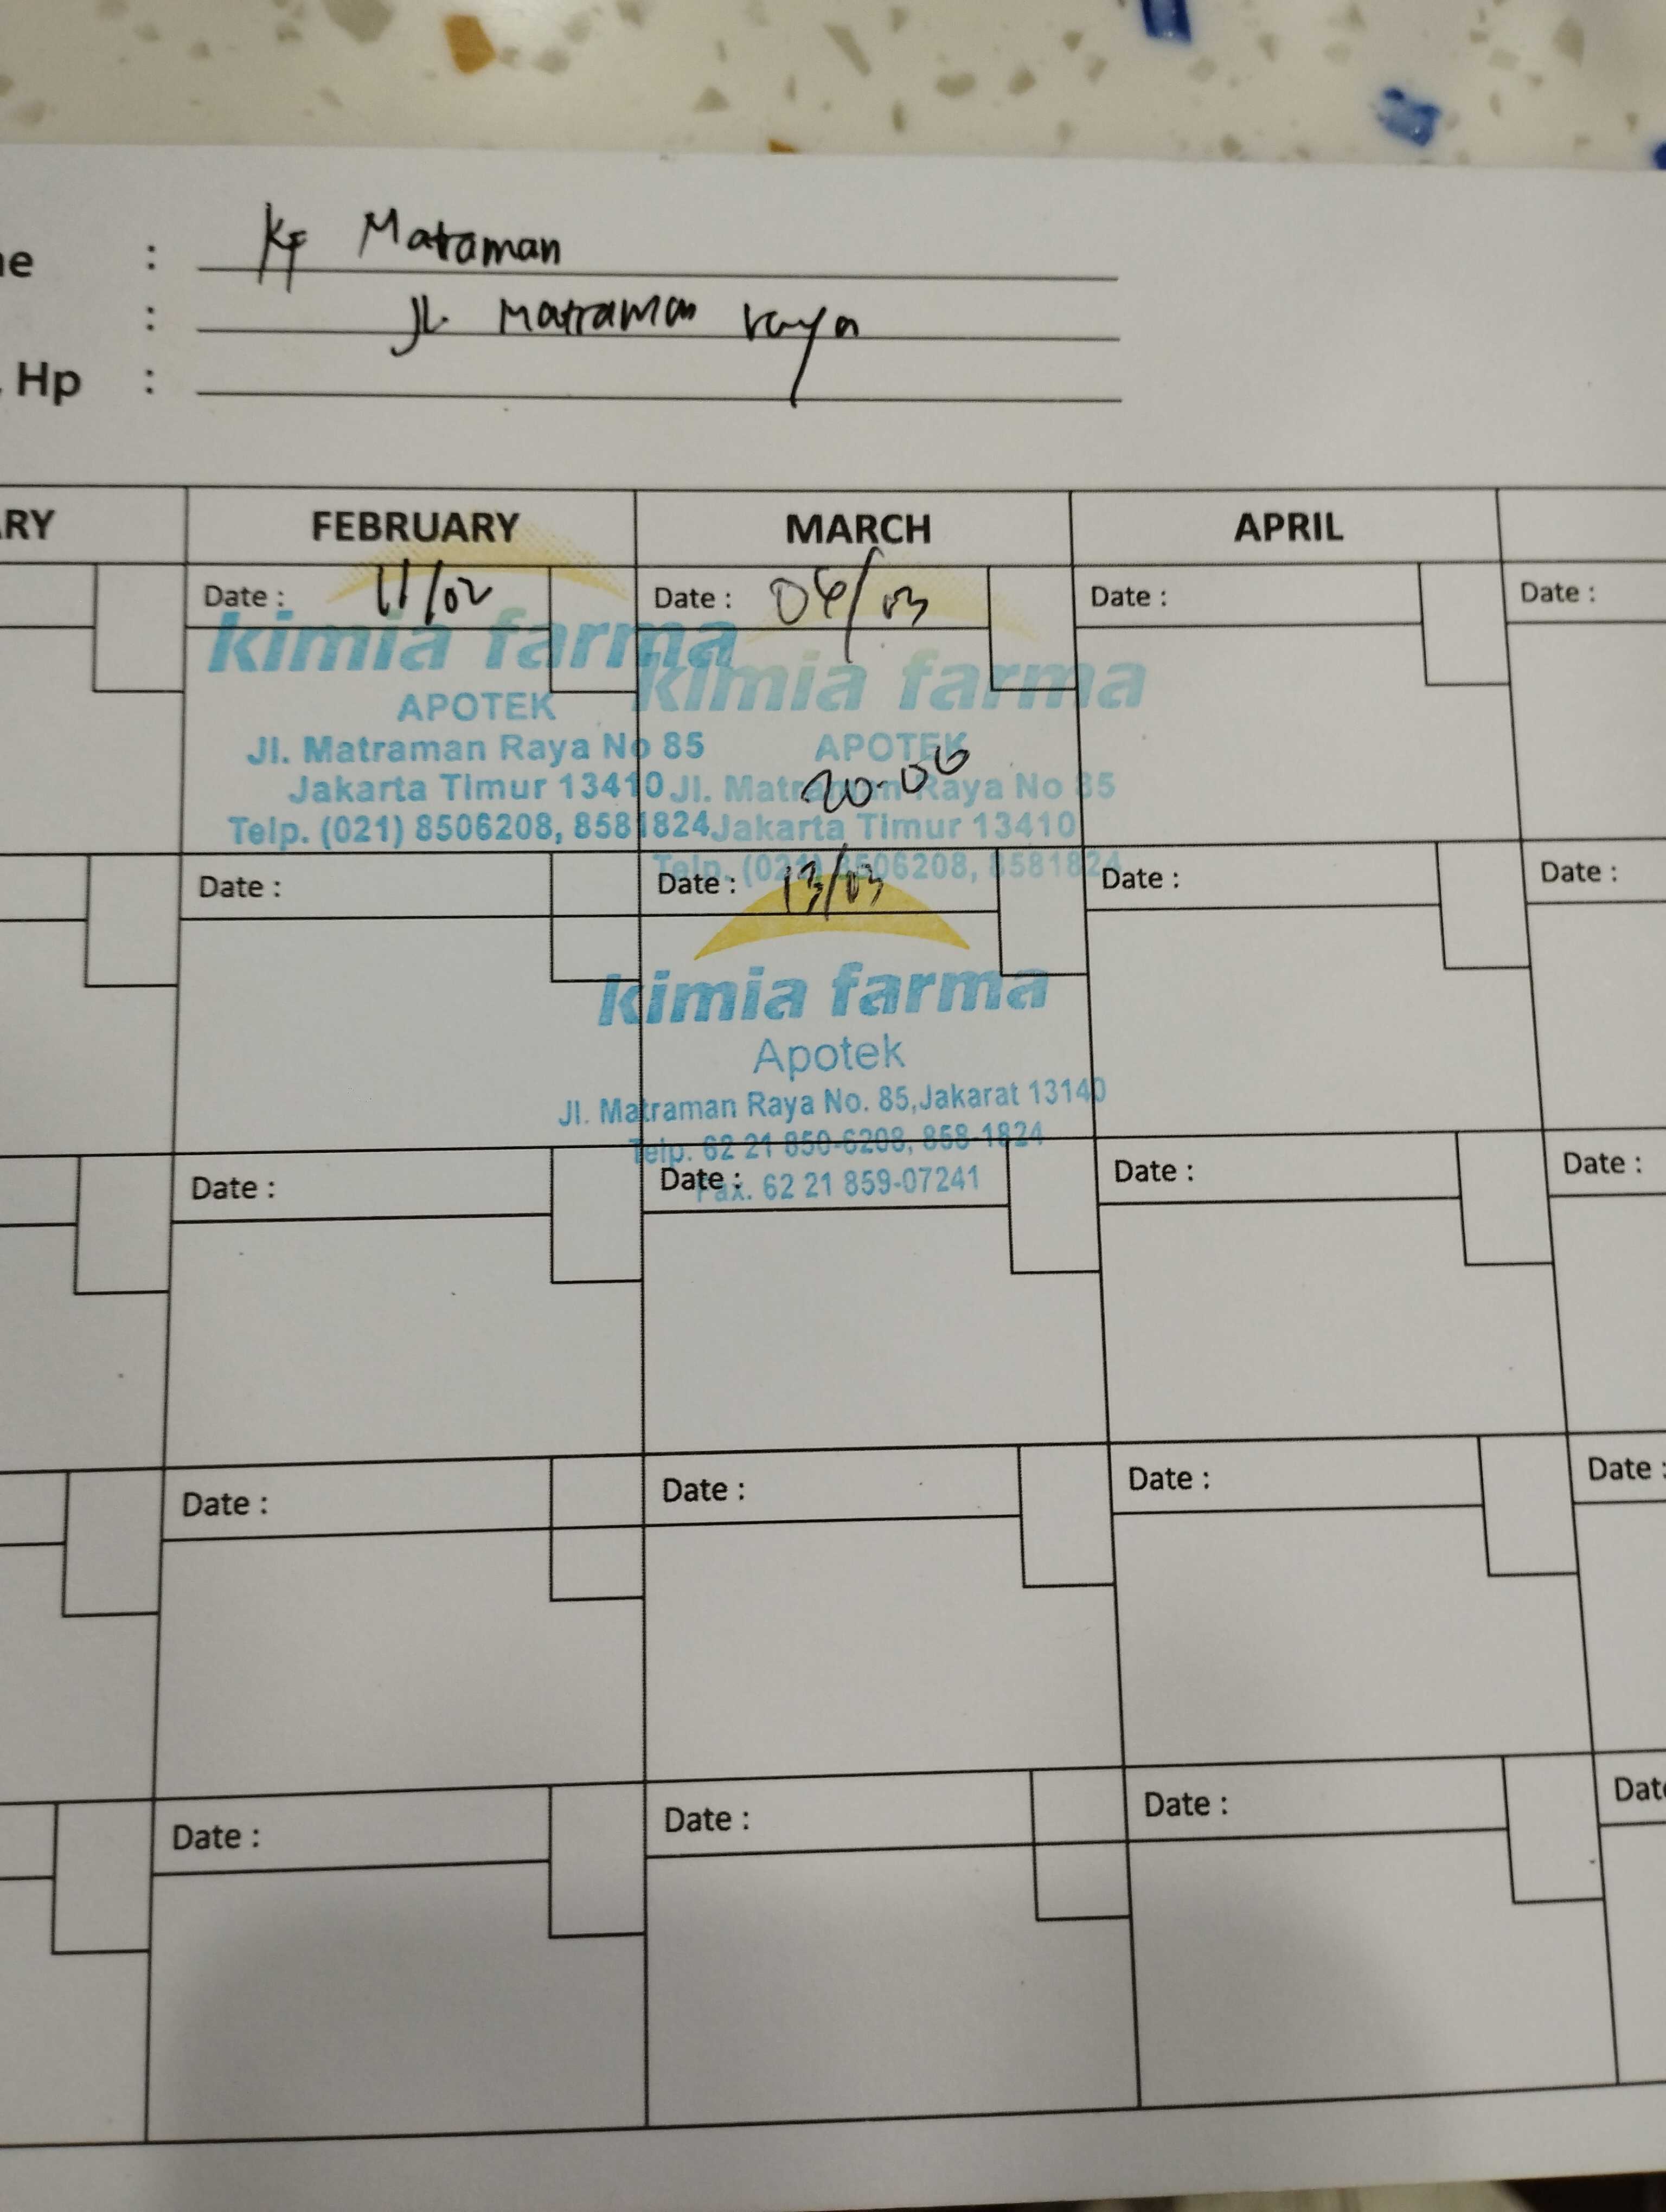 ne : KF Matraman
: Jl. Matraman raya
. Hp :
ARY FEBRUARY MARCH APRIL
Date : 11/02
kimia farma
APOTEK
Jl. Matraman Raya No 85
Jakarta Timur 13410
Telp. (021) 8506208, 8581824
Date : 04/03
kimia farma
APOTEK
20.00
Jl. Matraman Raya No 85
Jakarta Timur 13410
Telp. (021) 8506208, 8581824
Date :
Date :
Date :
Date : 13/03
kimia farma
Apotek
Jl. Matraman Raya No. 85,Jakarat 13140
Telp. 62 21 850-6208, 858-1824
Fax. 62 21 859-07241
Date :
Date :
Date :
Date :
Date :
Date :
Date :
Date :
Date :
Date :
Date :
Date :
Date :
Date